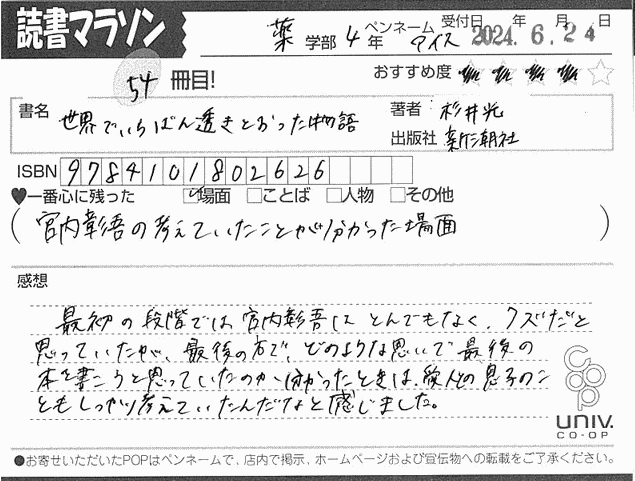 読書マラソン
薬 学部 4 年 ペンネーム アイス 受付日 2024. 6. 24 年 月 日
54 冊目! おすすめ度
書名 世界でいちばん透きとおった物語 著者: 杉井光
出版社 新潮社
ISBN 9784101802626
♥一番心に残った 場面 ことば 人物 その他
(宮内彰吾の考えていたことが分かった場面)
感想
最初の段階では宮内彰吾はとんでもなく、クズだと
思っていたが、最後の方で、どのような思いで最後の
本を書こうと思っていたのか分かったときは、愛人との息子のこ
ともしっかり考えていたんだなと感じました。
coop
UNIV.
CO-OP
●お寄せいただいたPOPはペンネームで、店内で掲示、ホームページおよび宣伝物への転載をご了承ください。